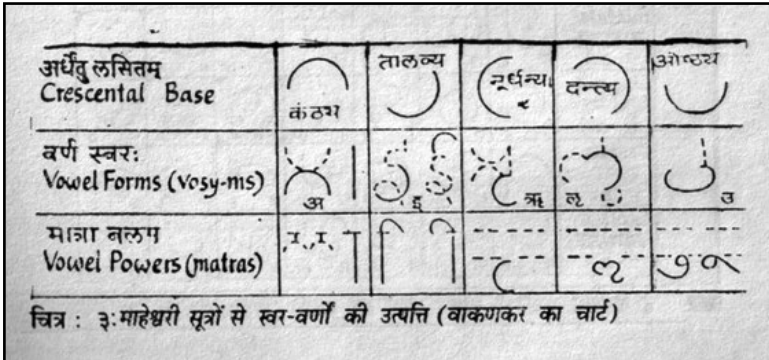 अर्धेंदु लसितम्
Crescental Base
कंठ्य
तालव्य
मूर्धन्य
दन्त्य
ओष्ठ्य
वर्ण स्वरः
Vowel Forms (Vosy-ms)
अ
इ
ऋ
लृ
उ
मात्रा
Vowel Powers (matras)
चित्र : ३:माहेश्वरी सूत्रों से स्वर-वर्णों की उत्पत्ति (वाकणकर का चार्ट)